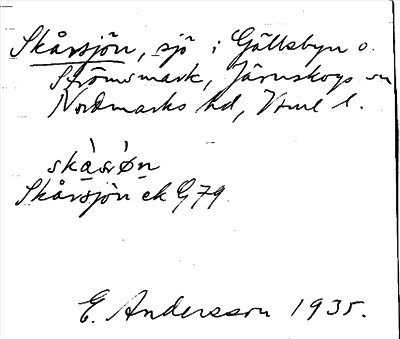 Skårsjön, sjö i Gällsbyn o.
Strömsmark, Järnskogs sn
Nordmarks hd, Vrml l.
skàsr ǿn
Skårsjön ek G 79
E. Andersson 1935.